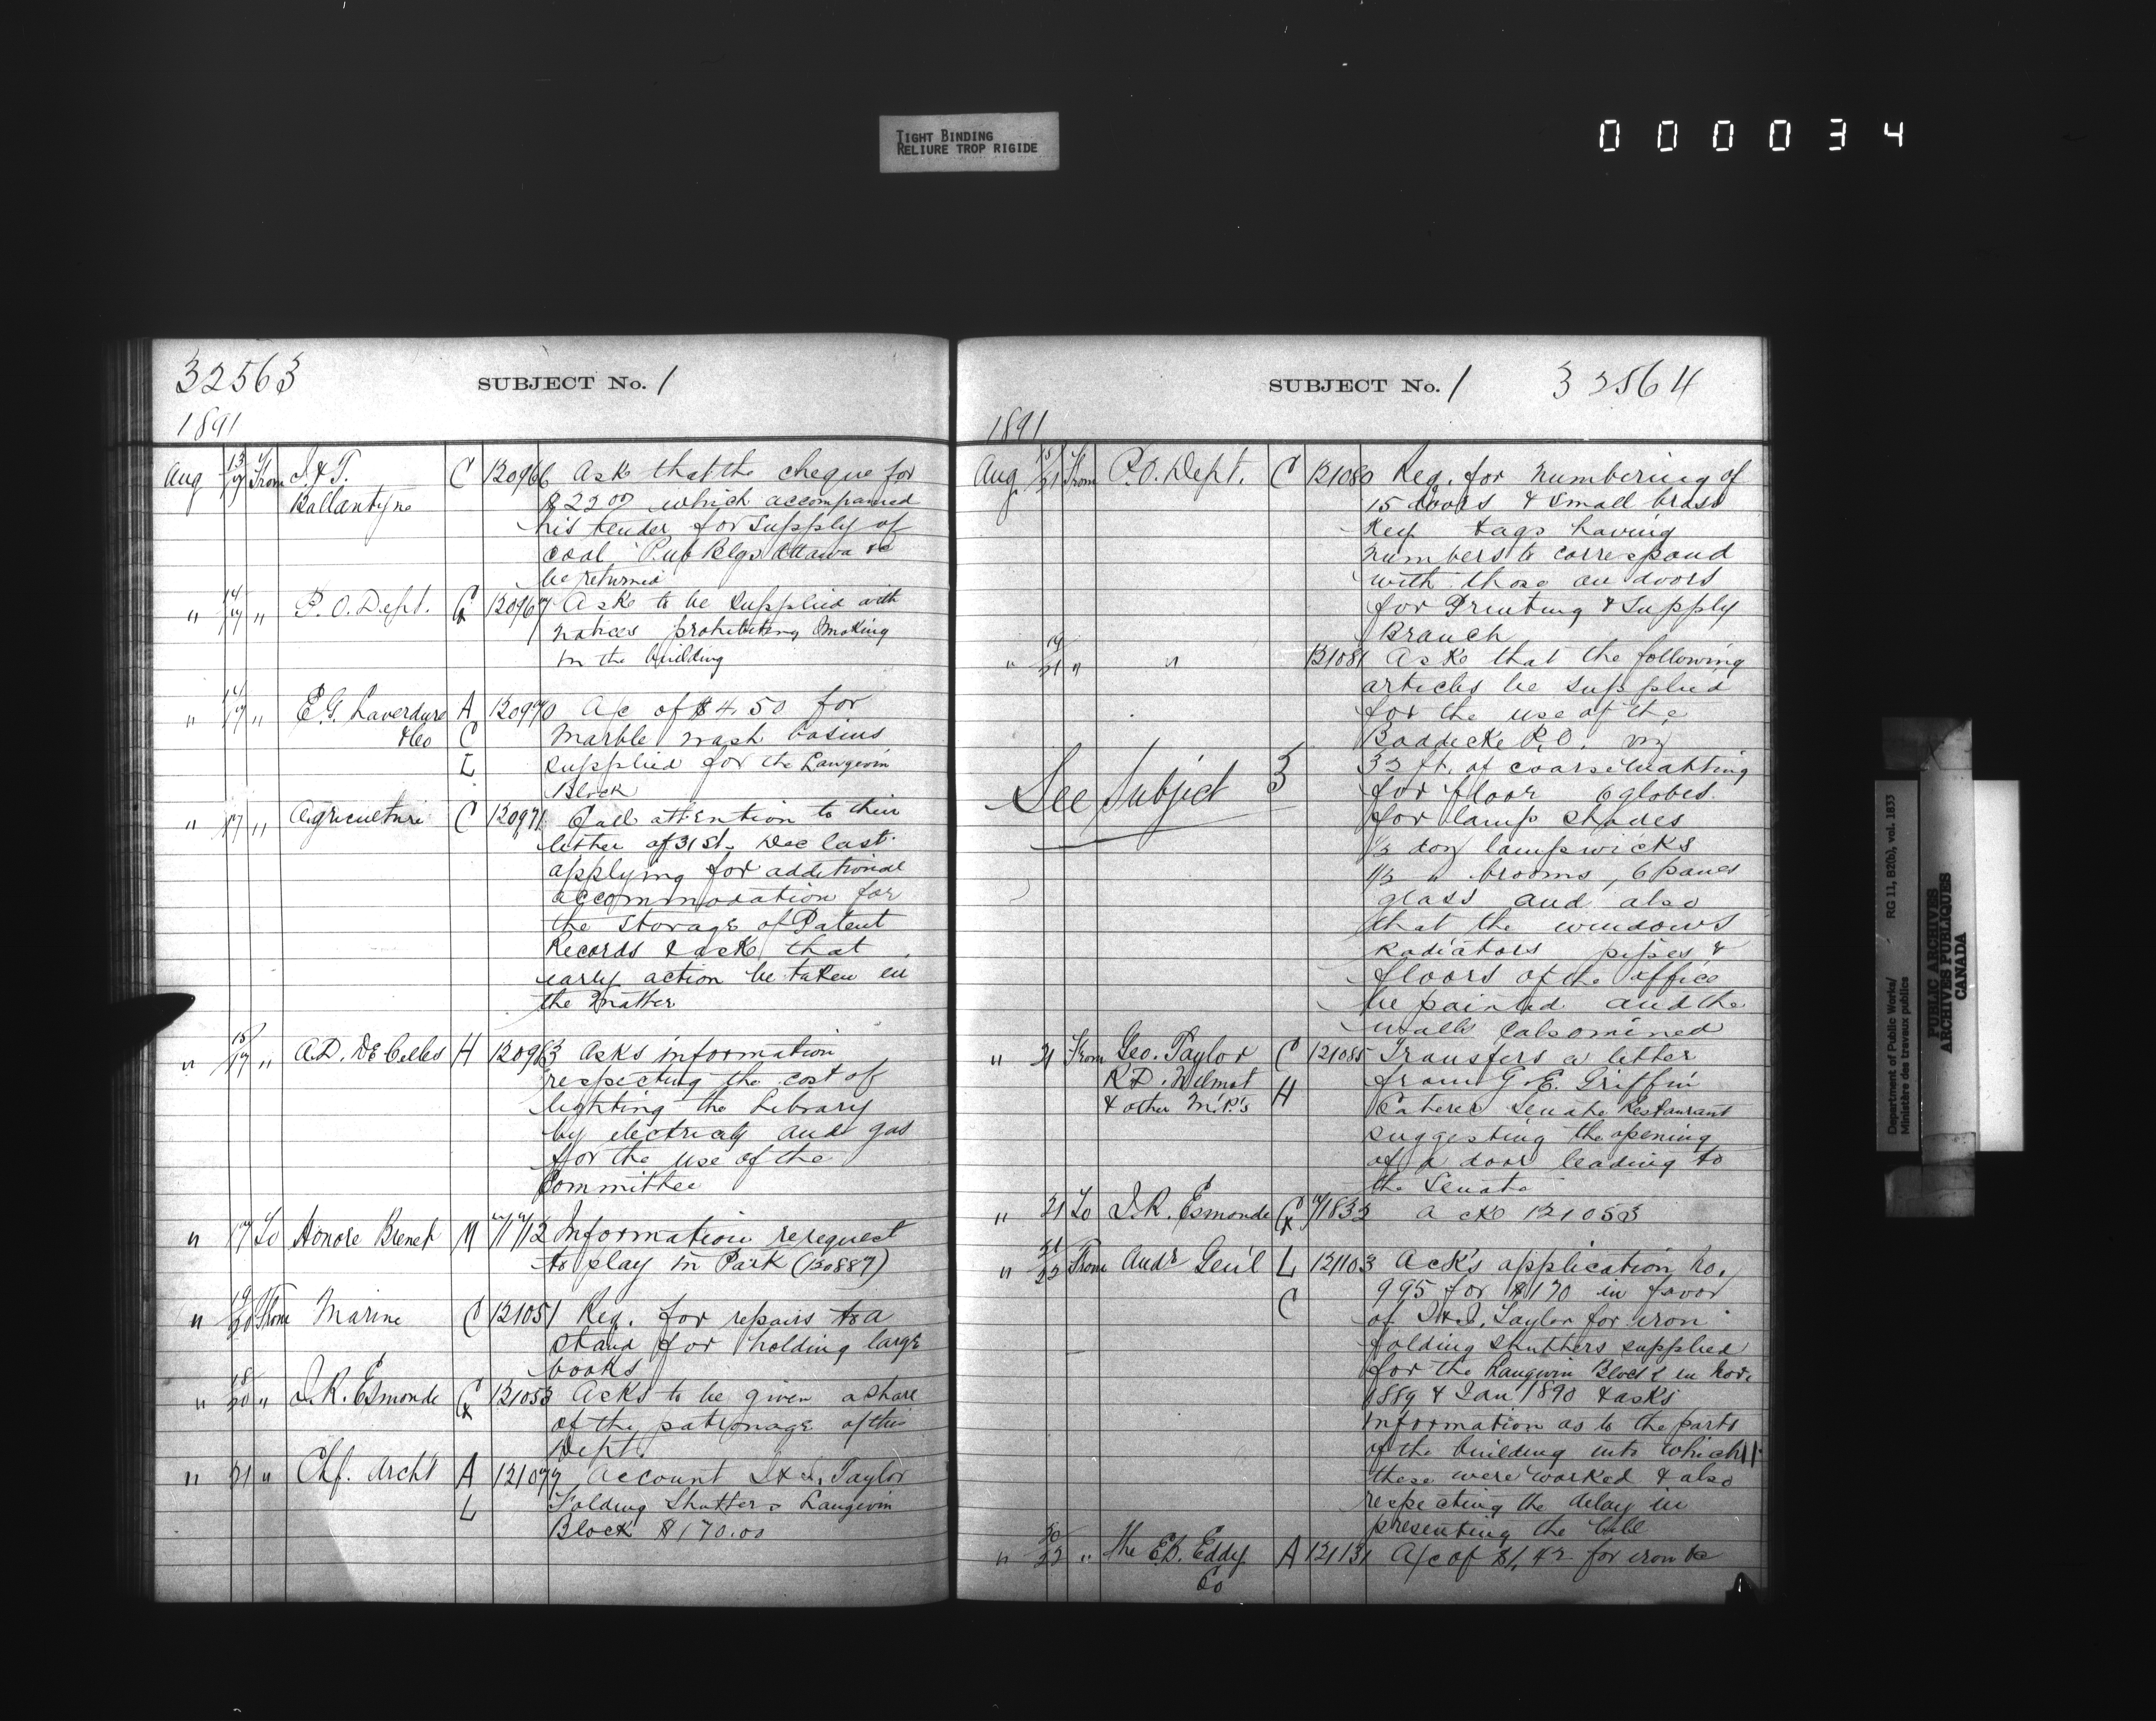 TIGHT BINDING
RELIURE TROP RIGIDE
000034
32563
SUBJECT No. 1
1891
Aug 13/17 From J. & T. C 120966 Ask that the cheque for
Ballantyne $2200 which accompanied
his tender for supply of
coal Pub Blgs Ottawa &c
be returned
" 14/17 " P. O. Dept. 120967 Asks to be supplied with
notices prohibiting smoking
in the building
" 14/17 " E. G. Laverdure A 120970 A/c of $4.50 for
& Co C Marble wash basins
L supplied for the Langevin
Block
" 17 " Agriculture C 120971 Call attention to their
letter of 31st. Dec last
applying for additional
accommodation for
the storage of Patent
Records & ask that
early action be taken in
the matter
" 15/17 " A. D. De Celles H 120983 Asks information
respecting the cost of
lighting the Library
by electricity and gas
for the use of the
Committee
" 17 To Honore Brenet M Information re request
to play in Park (120887)
" 19/20 From Marine C 121051 Req. for repairs to a
stand for holding large
books
" 18/20 " J. R. Esmonde 121053 Asks to be given a share
of the patronage of this
Dept.
" 21 " Chf. Archt A 121077 Account J & J. Taylor
L Folding Shutters Langevin
Block $170.00
SUBJECT No. 1
32564
1891
Aug 15/21 From P. O. Dept. C 121080 Req. for numbering of
15 doors & small brass
Key tags having
numbers to correspond
with those on doors
for Printing & Supply
Branch
" 19/21 " " 121081 Asks that the following
articles be supplied
for the use of the
Baddecke P. O. viz
32 ft. of coarse matting
See Subject 3
for floor 6 globes
for lamp shades
1/2 doz lampwicks
1/2 " brooms, 6 panes
glass and also
that the windows
radiators pipes &
floors of the office
be painted and the
walls calsomined
" 21 From Geo. Taylor C 121085 Transfers a letter
R. D. Wilmot from G. E. Griffin
& other M.P.'s H Caterer Senate Restaurant
suggesting the opening
of a door leading to
the Senate
" 21 To J. R. Esmonde 71832 Acks 121053
" 21/22 From Audr Genl L 121103 Acks application No.
995 for $170 in favor
C of J & J. Taylor for iron
folding shutters supplied
for the Langevin Block in Nov.
1889 & Jan 1890 & asks
information as to the parts
of the building into which
these were worked & also
respecting the delay in
presenting the bill
" 20/22 " The E. B. Eddy A 121131 A/c of $1.42 for iron &c
Co
Department of Public Works/ RG 11, B2(b), vol. 1833
Ministère des travaux publics
PUBLIC ARCHIVES
ARCHIVES PUBLIQUES
CANADA